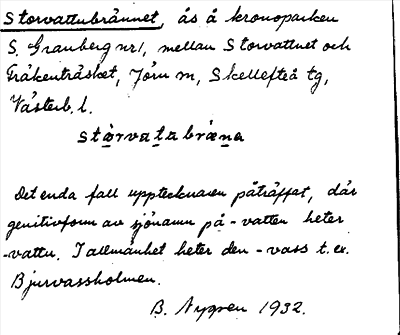 Storvattubrännet, ås å kronoparken
S. Granberg nr 1, mellan Storvattnet och
Fräkenträsket, Jörn sn, Skellefteå tg,
Västerb. l.
stårvatabräna
Det enda fall upptecknaren påträffat, där
genitivform av sjönamn på -vatten heter
-vattu. I allmänhet heter den -vass t. ex.
Bjurvassholmen.
B. Nygren 1932.